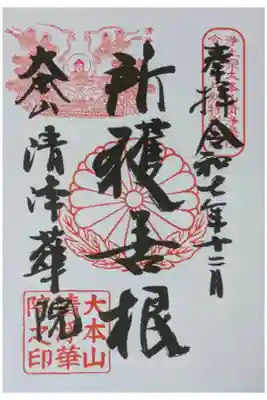 奉拝 令和七年十二月
所獲善根
大本山 清浄華院
大本山
清浄華
院之印